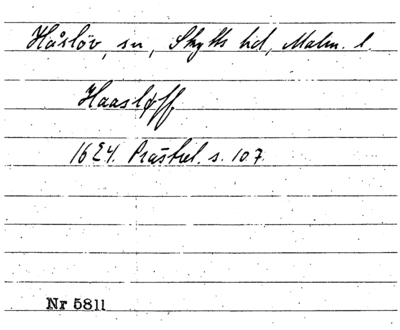 Håslöv, sn, Skytts hd, Malm. l.
Haasløff
1624. Prästrel. s. 107.
Nr 5811